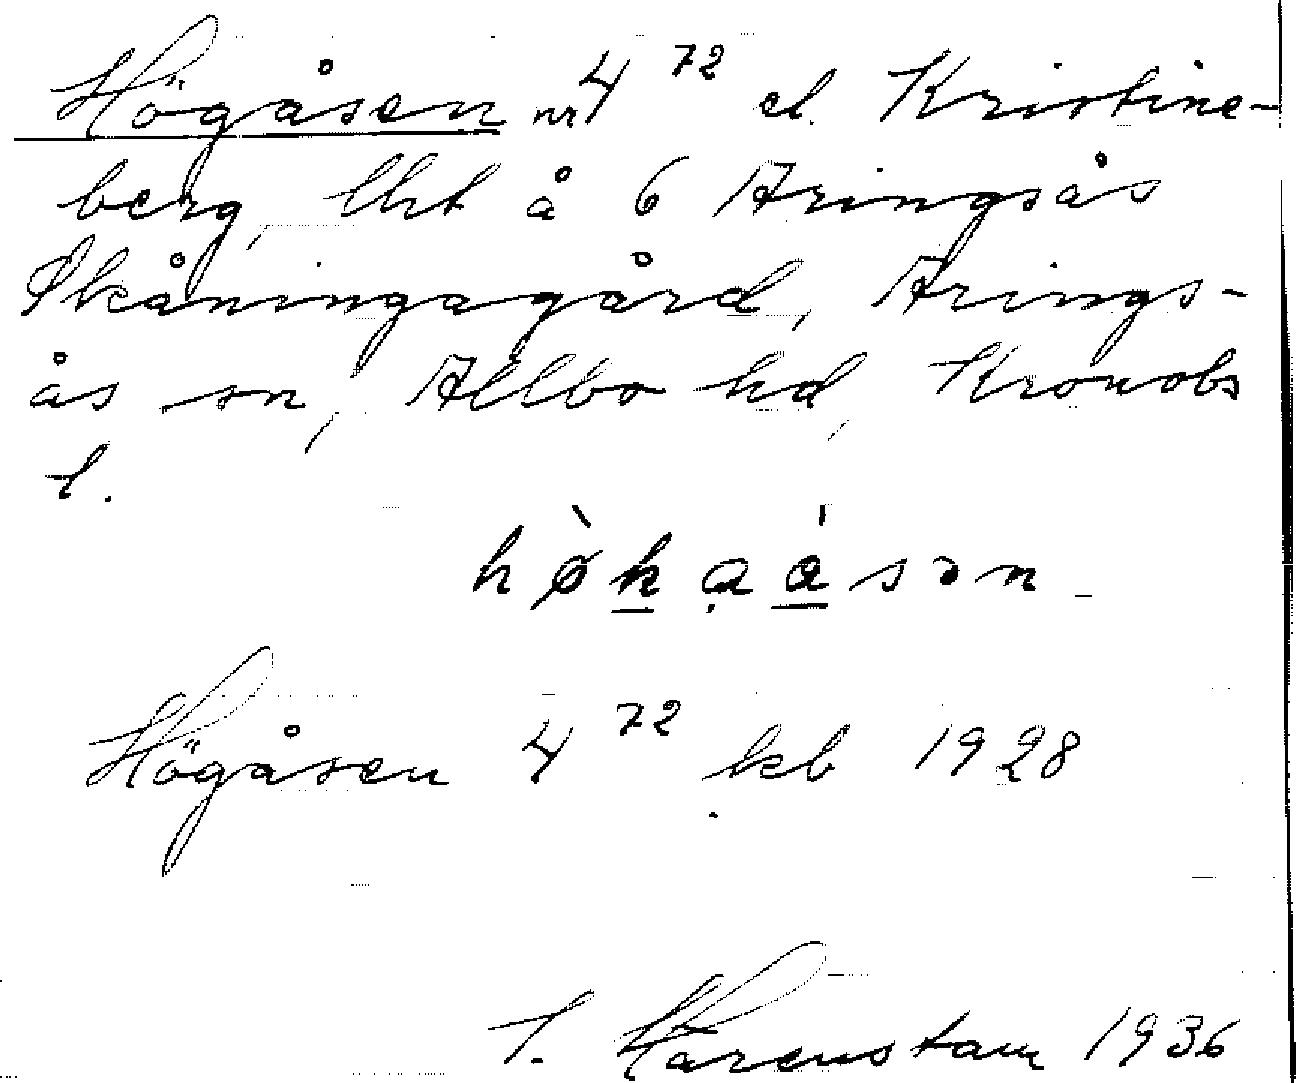 Högåsen nr 4⁷² el. Kristine-
berg, lht å 6 Aringsås
Skåningagård, Arings-
ås sn, Allbo hd, Kronobs
l.
Högåsen 4⁷² kb 1928
1936